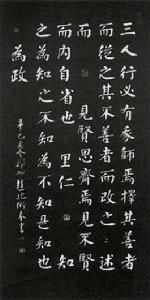 三人行必有我師焉擇其善者
而從之其不善者而改之 述
而 見賢思齊焉見不賢
而内自省也 里仁 知
之為知之不知為不知是知
也 為政
辛巳
書